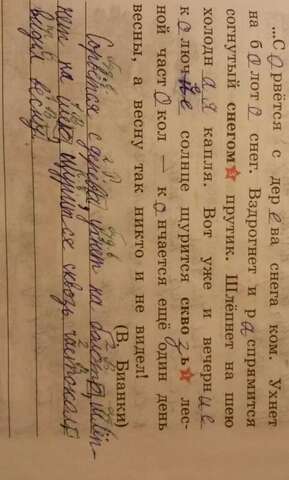 ...Сорвётся с дерева снега ком. Ухнет
на болото снег. Вздрогнет и распрямится
согнутый снегом прутик. Шлёпнет на шею
холодная капля. Вот уже и вечерние
колючее солнце щурится сквозь лес-
ной частокол — кончается ещё один день
весны, а весну так никто и не видел!
(В. Бианки)
Сорвётся с дерева, ухнет на болото, шлёп-
нет на шею, щурится сквозь частокол,
видел весну.